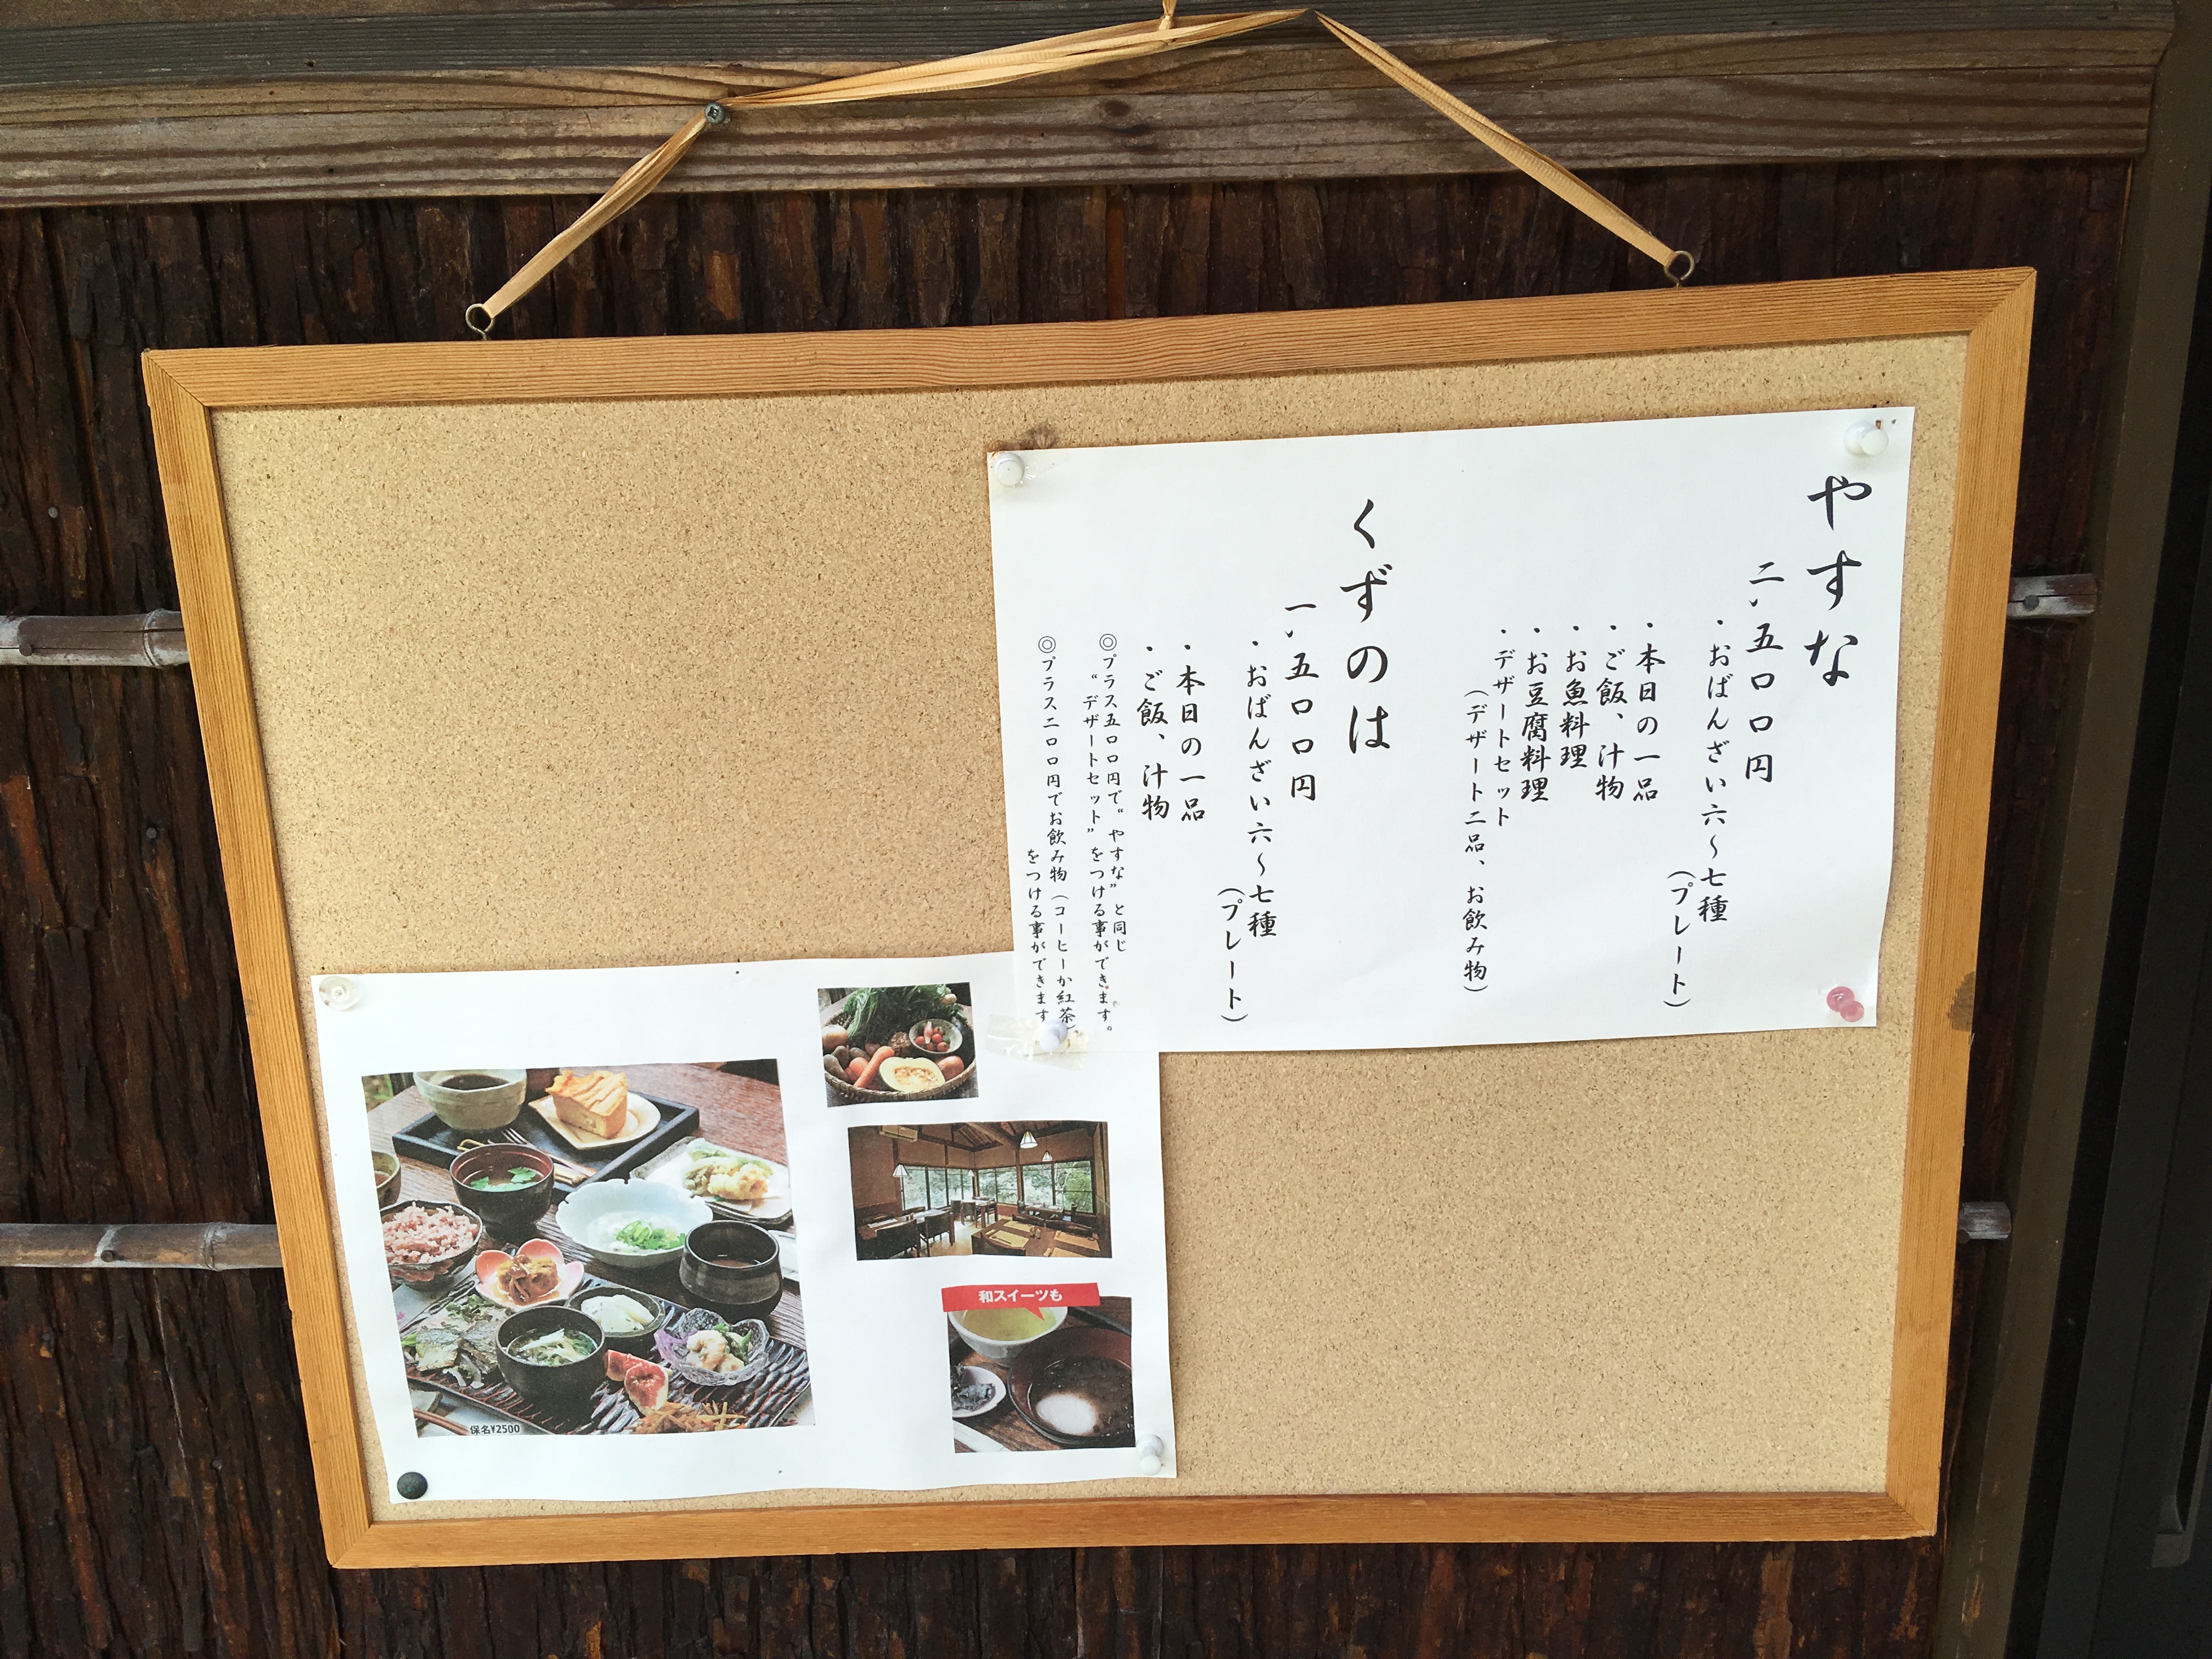 やすな
二、五〇〇円
・おばんざい六～七種
（プレート）
・本日の一品
・ご飯、汁物
・お魚料理
・お豆腐料理
・デザートセット
（デザート二品、お飲み物）
くずのは
一、五〇〇円
・おばんざい六～七種
（プレート）
・本日の一品
・ご飯、汁物
◎プラス五〇〇円で“やすな”と同じ
“デザートセット”をつける事ができます。
◎プラス二〇〇円でお飲み物（コーヒーか紅茶）
をつける事ができます
和スイーツも
保名¥2500